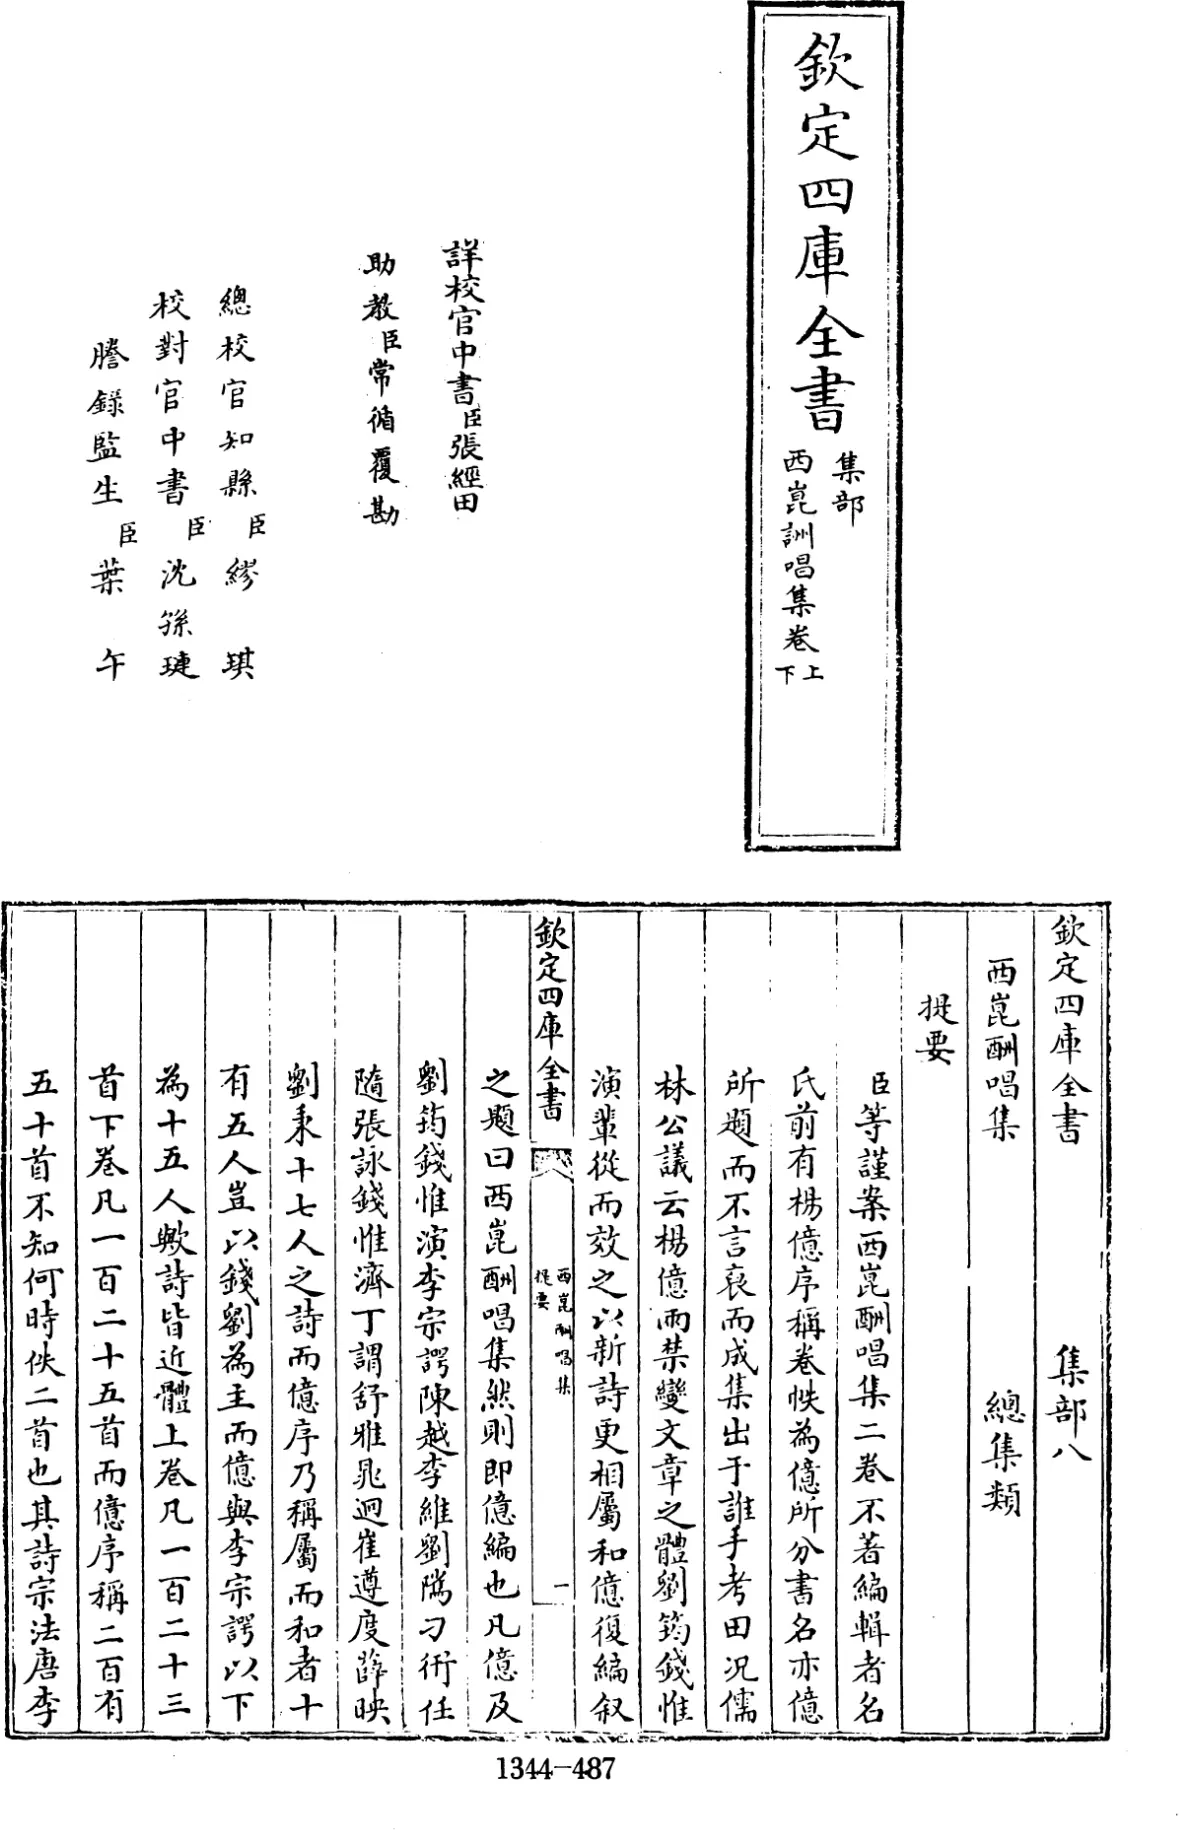 欽定四庫全書
集部
西崑訓唱集卷上下
詳校官中書臣張經田
助教臣常循覆勘
總校官知縣臣繆琪
校對官中書臣沈孫璉
謄錄監生臣葉午
欽定四庫全書 集部八
西崑酬唱集 總集類
提要
臣等謹案西崑酬唱集二卷不著編輯者名
氏前有楊億序稱卷帙為億所分書名亦億
所題而不言裒而成集出于誰手考田況儒
林公議云楊億兩禁變文章之體劉筠錢惟
演輩從而效之以新詩更相屬和億復編叙
欽定四庫全書
西崑酬唱集
提要
一
之題曰西崑酬唱集然則即億編也凡億及
劉筠錢惟演李宗諤陳越李維劉隲刁衎任
隨張詠錢惟濟丁謂舒雅晁迥崔遵度薛映
劉秉十七人之詩而億序乃稱屬而和者十
有五人豈以錢劉為主而億與李宗諤以下
為十五人歟詩皆近體上卷凡一百二十三
首下卷凡一百二十五首而億序稱二百有
五十首不知何時佚二首也其詩宗法唐李
1344-487